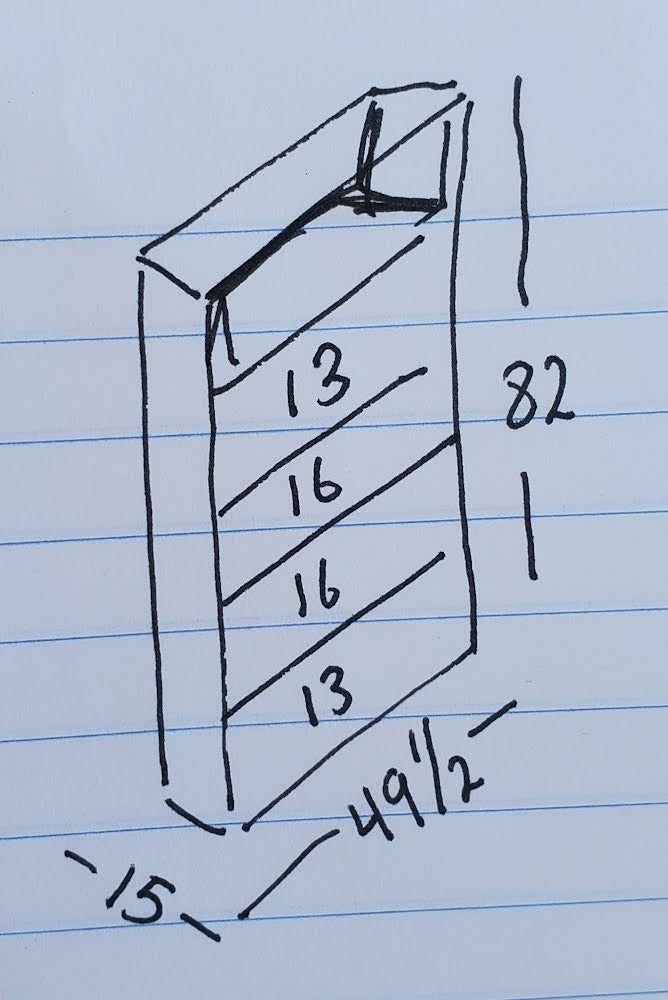 13
82
16
16
13
49 1/2
15